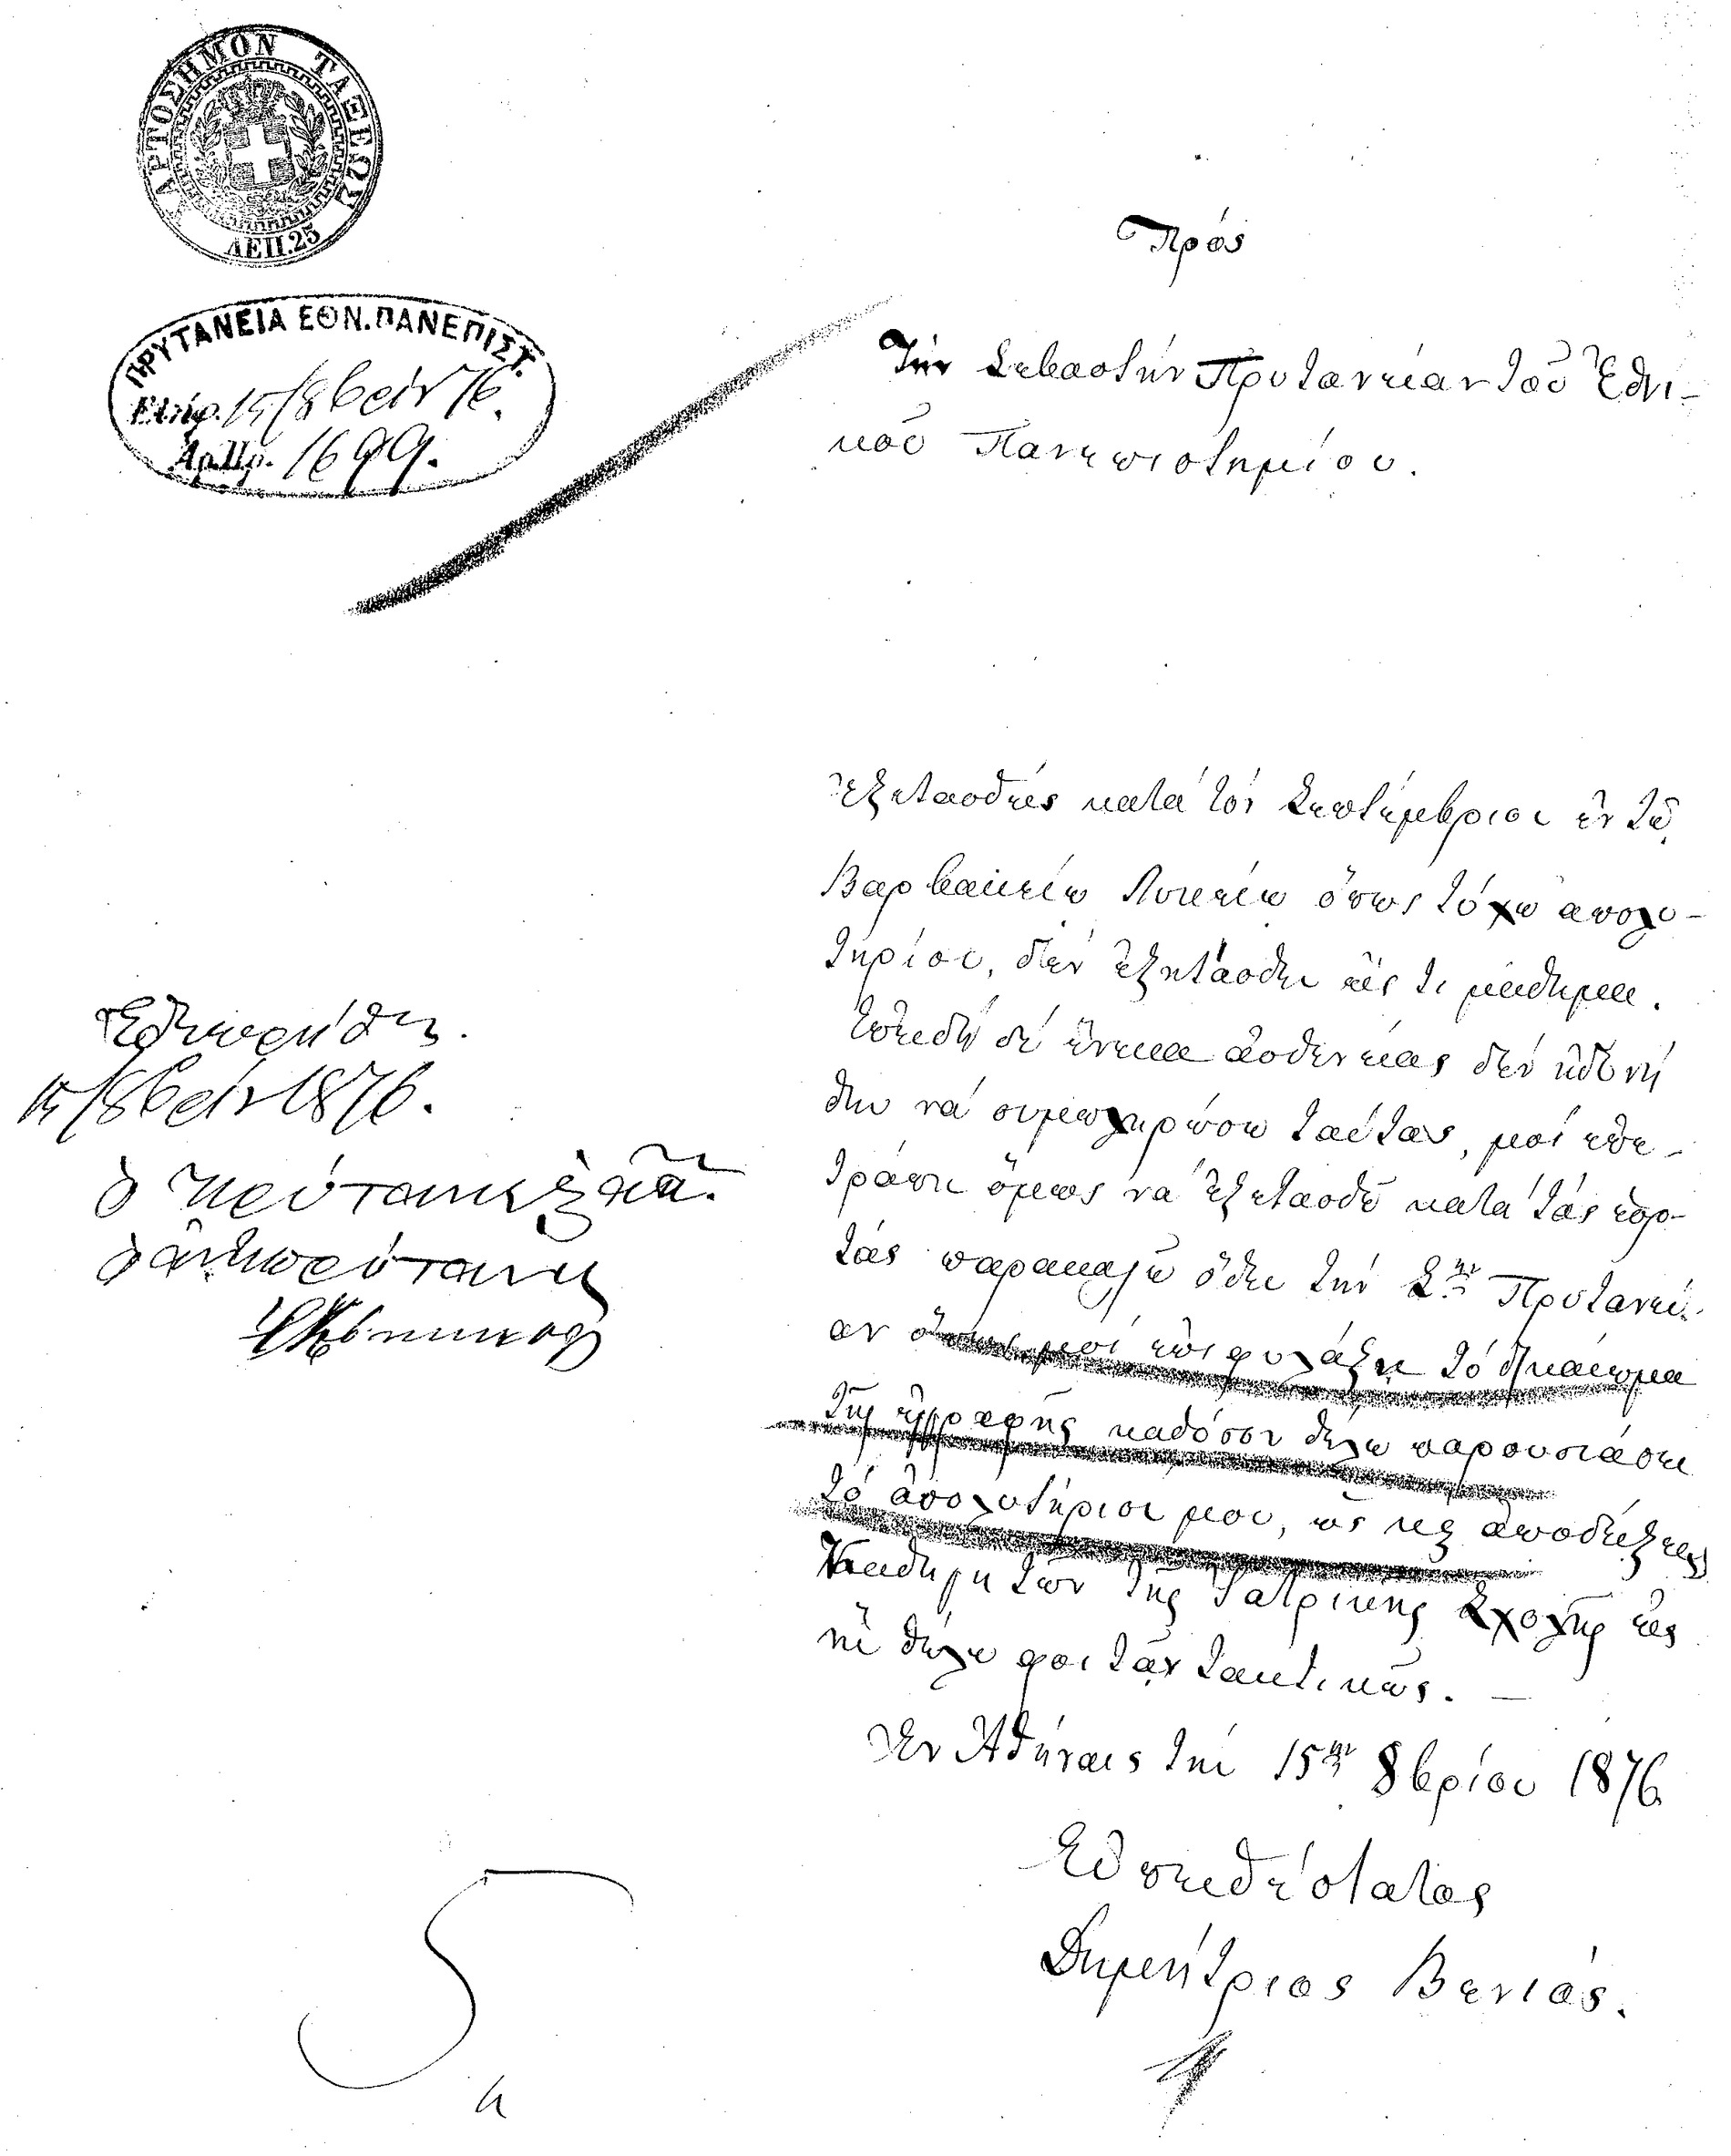 ΧΑΡΤΟΣΗΜΟΝ ΤΑΞΕΩΣ
ΛΕΠ. 25
ΠΡΥΤΑΝΕΙΑ ΕΘΝ. ΠΑΝΕΠΙΣΤ.
Ελήφ. 15/8βρίου 76.
Αρ.Πρ. 1699.
Πρός
Τήν Σεβαστήν Πρυτανείαν τοῦ Ἐθνι-
κοῦ Πανεπιστημίου.
Ἐξετασθείς κατά τόν Σεπτέμβριον ἐν τῷ
Βαρβακείῳ Λυκείῳ ὅπως τύχω ἀπολυ-
τηρίου, δέν ἐξητάσθην εἴς τι μάθημα.
Ἐπειδή δέ ἕνεκα ἀσθενείας δέν ἠδυνή
θην νά συμπληρώσω ταύτας, μοί ἐπε-
τράπη ὅμως νά ἐξετασθῶ κατά τάς ἑορ-
τάς παρακαλῶ ὅθεν τήν Σην Πρυτανεί-
αν ὅπως μοί ἐπιφυλάξῃ τό δικαίωμα
τῆς ἐγγραφῆς καθόσον θέλω παρουσιάσει
τό ἀπολυτήριόν μου, ὡς καί ἀποδείξεις
Καθηγητῶν τῆς Ἰατρικῆς Σχολῆς εἰς
ἥν θέλω φοιτᾷν τακτικῶς. —
Ἐν Ἀθήναις τήν 15ην 8βρίου 1876
Εὐπειθέστατος
Δημήτριος Βενιός.
Ἐθεωρήθη.
15/8βρίου 1876.
ὁ
ὁ ἀντιπρύτανις
5